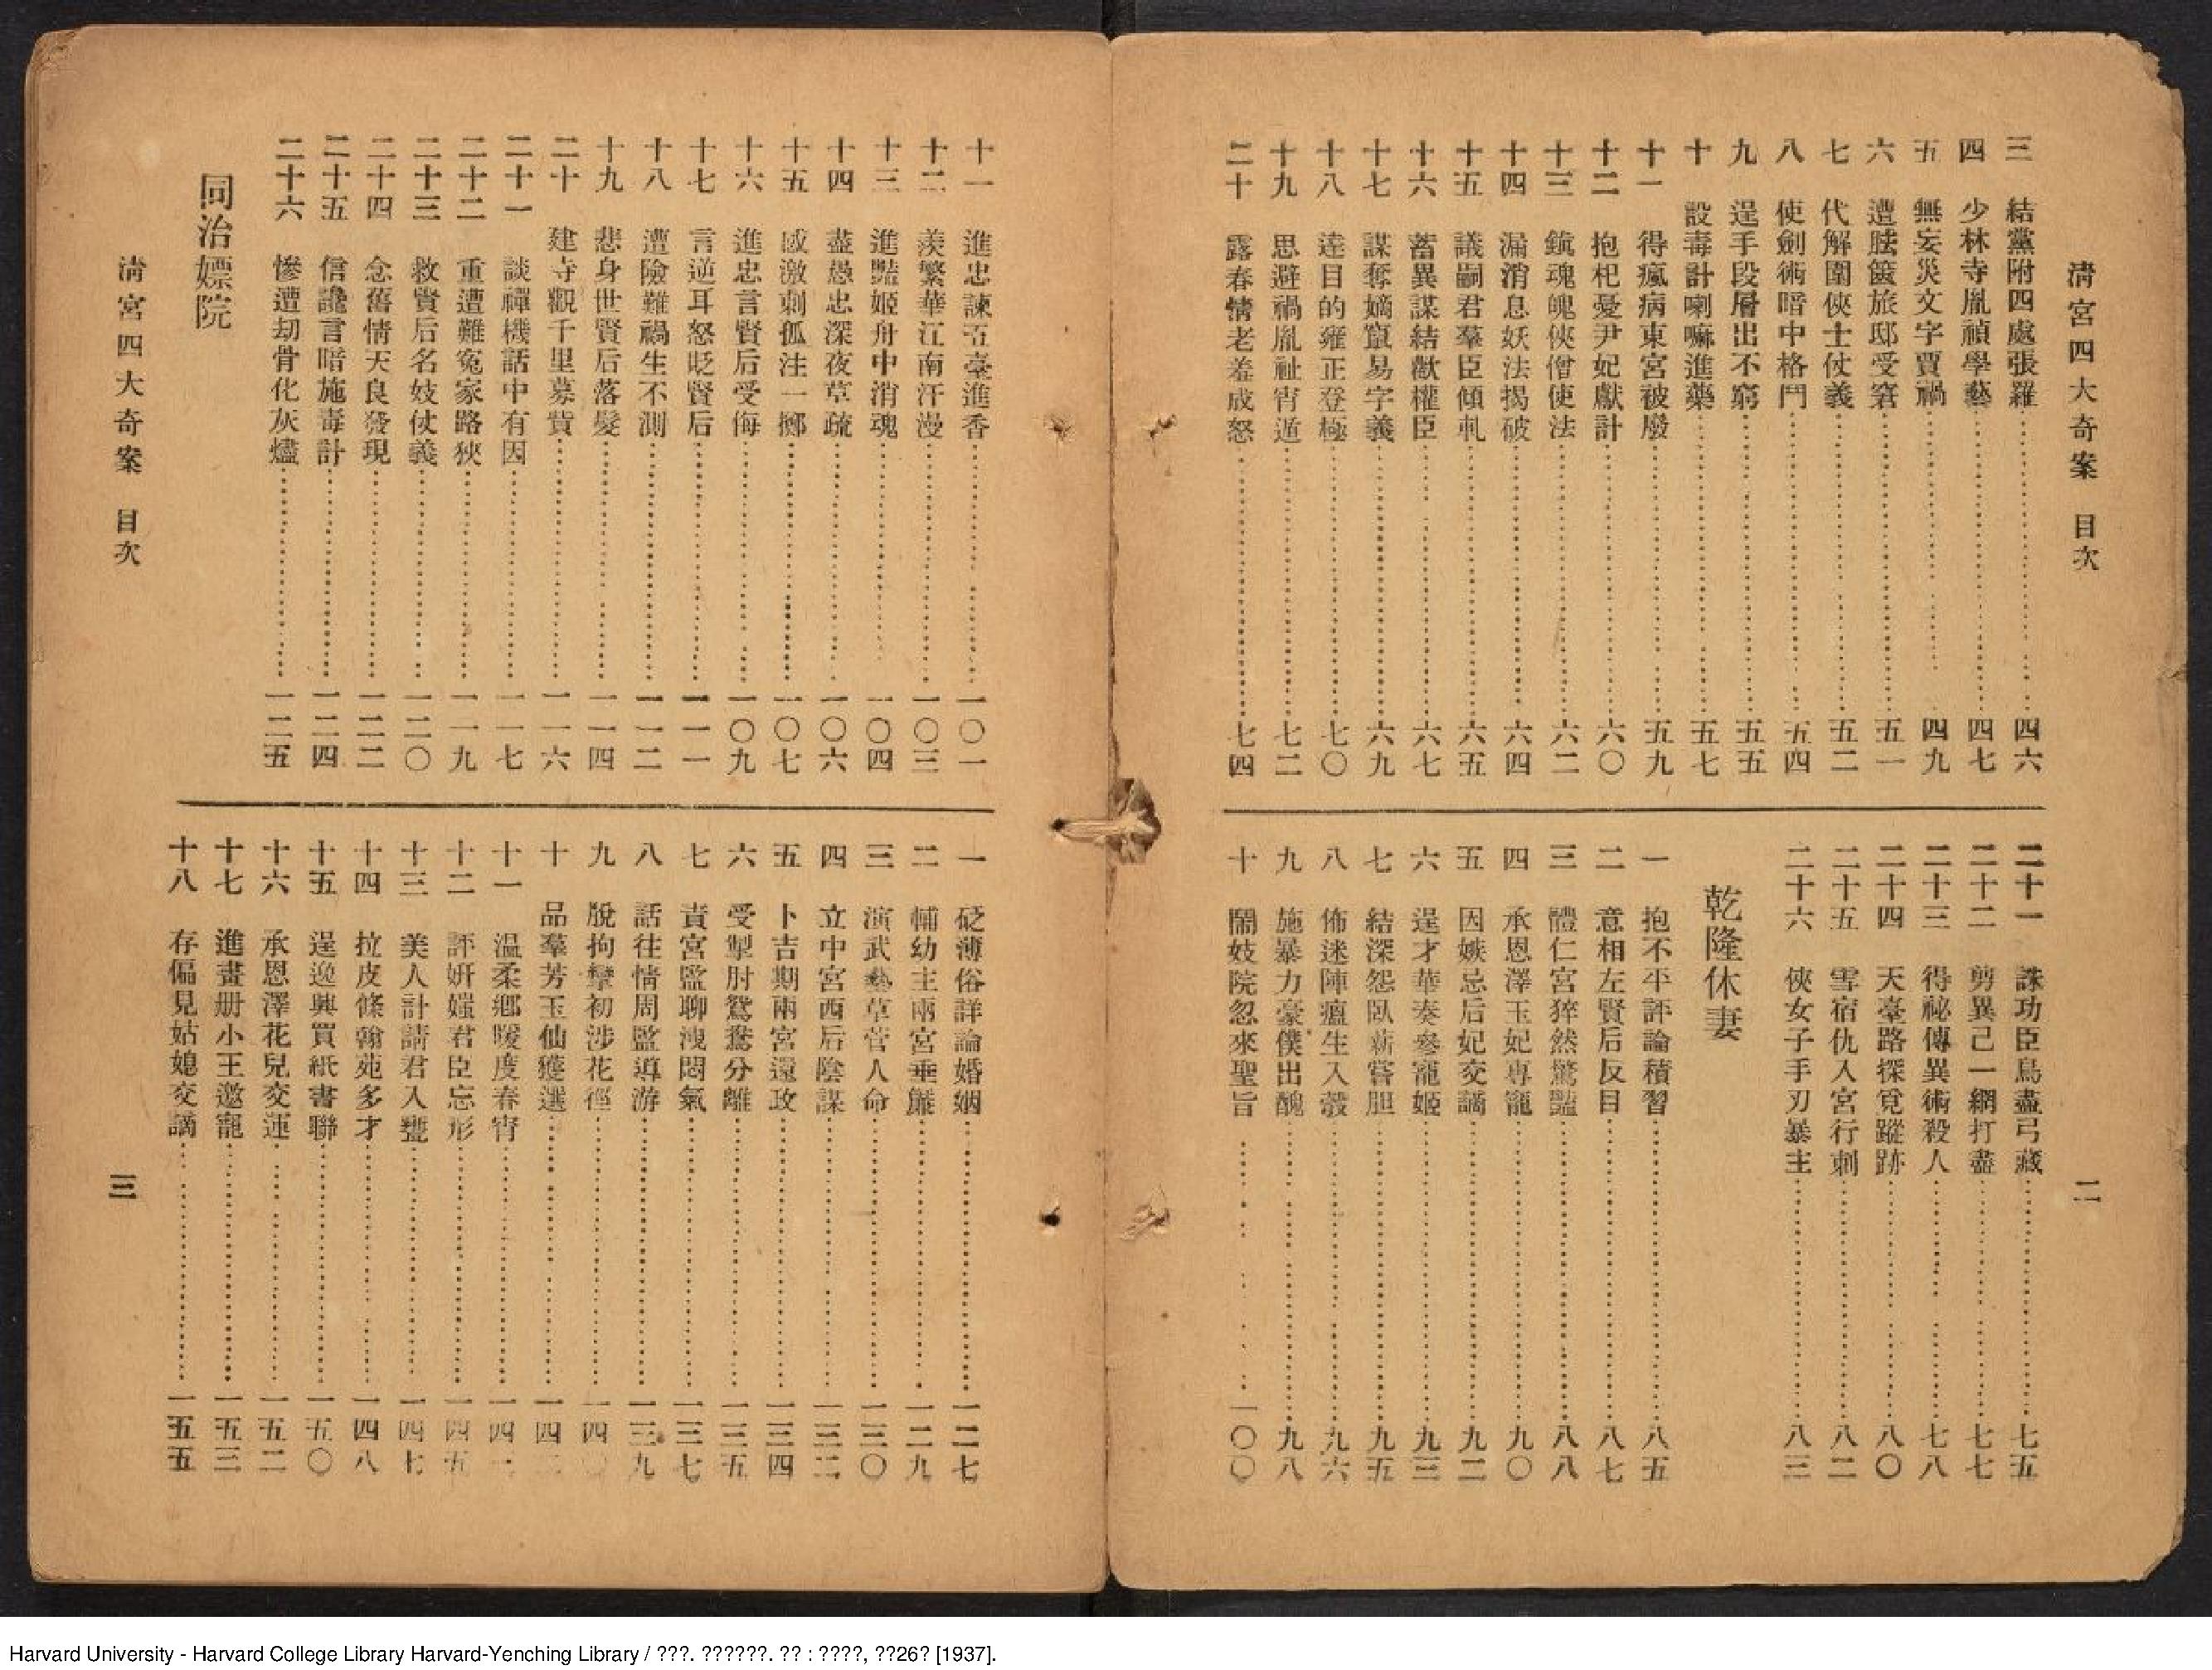 清宮四大奇案 目次
二
三 結黨附四處張羅 四六
四 少林寺胤禎學藝 四七
五 無妄災文字賈禍 四九
六 遭胠篋旅邸受窘 五一
七 代解圍俠士仗義 五二
八 使劍術暗中格鬥 五四
九 逞手段層出不窮 五五
十 設毒計喇嘛進藥 五七
十一 得瘋病東宮被廢 五九
十二 抱杞憂尹妃獻計 六〇
十三 鎮魂魄俠僧使法 六二
十四 漏消息妖法揭破 六四
十五 議嗣君羣臣傾軋 六五
十六 蓄異謀結歡權臣 六七
十七 謀奪嫡竄易字義 六九
十八 達目的雍正登極 七〇
十九 思避禍胤祉宵遁 七二
二十 露春情老羞成怒 七四
二十一 誅功臣鳥盡弓藏 七五
二十二 剪異己一網打盡 七七
二十三 得祕傳異術殺人 七八
二十四 天臺路探覓蹤跡 八〇
二十五 雪宿仇入宮行刺 八二
二十六 俠女子手刃暴主 八三
乾隆休妻
一 抱不平評論積習 八五
二 意相左賢后反目 八七
三 體仁宮猝然驚豔 八八
四 承恩澤玉妃專寵 九〇
五 因嫉忌后妃交謫 九二
六 逞才華奏參寵姬 九三
七 結深怨臥薪嘗胆 九五
八 佈迷陣瘟生入彀 九六
九 施暴力豪僕出醜 九八
十 鬧妓院忽來聖旨 一〇〇
十一 進忠諫五臺進香 一〇一
十二 羨繁華江南汗漫 一〇三
十三 進豔姬舟中消魂 一〇四
十四 盡愚忠深夜草疏 一〇六
十五 感激刺孤注一擲 一〇七
十六 進忠言賢后受侮 一〇九
十七 言逆耳怒貶賢后 一一一
十八 遭險難禍生不測 一一二
十九 悲身世賢后落髮 一一四
二十 建寺觀千里募貲 一一六
二十一 談禪機話中有因 一一七
二十二 重遭難寃家路狹 一一九
二十三 救賢后名妓仗義 一二〇
二十四 念舊情天良發現 一二二
二十五 信讒言暗施毒計 一二四
二十六 慘遭劫骨化灰燼 一二五
同治嫖院
一 砭薄俗詳論婚姻 一二七
二 輔幼主兩宮垂簾 一二九
三 演武藝草菅人命 一三〇
四 立中宮西后陰謀 一三二
五 卜吉期兩宮還政 一三四
六 受掣肘鴛鴦分離 一三五
七 責宮監聊洩悶氣 一三七
八 話往情周監導游 一三九
九 脫拘攣初涉花徑 一四
十 品羣芳玉仙獲選 一四
十一 温柔鄉暖度春宵 一四
十二 評妍媸君臣忘形 一四五
十三 美人計請君入甕 一四七
十四 拉皮條翰苑多才 一四八
十五 逞逸興買紙書聯 一五〇
十六 承恩澤花兒交運 一五二
十七 進畫册小王邀寵 一五三
十八 存偏見姑媳交謫 一五五
清宮四大奇案 目次
三
Harvard University - Harvard College Library Harvard-Yenching Library / ???. ??????. ?? : ????, ??26? [1937].